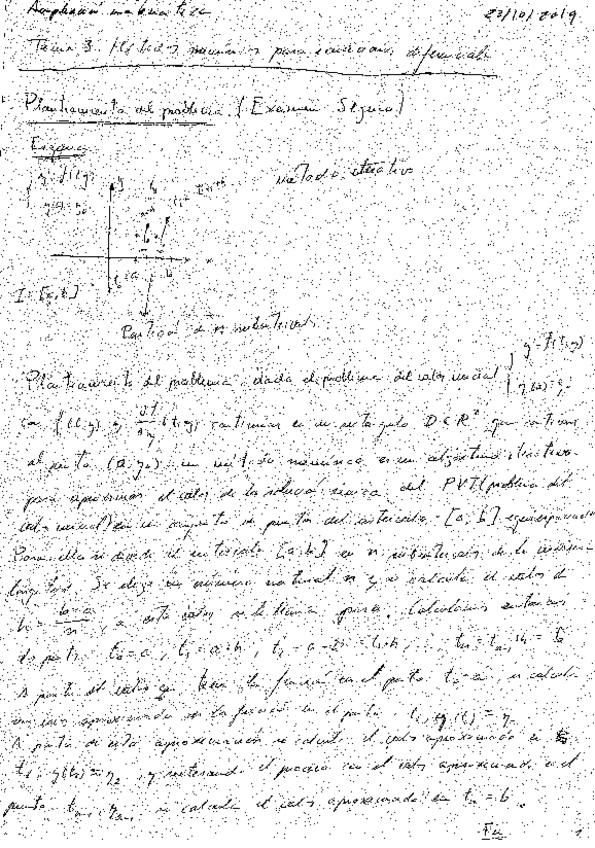 Ampliación matemática 23/10/2019
Tema 3. Métodos numéricos para ecuaciones diferenciales
Planteamiento del problema (Examen Seguro)
Esquema
método iterativo
I = [a,b]
Partición de n subintervalos
Planteamiento del problema: dado el problema del valor inicial { y' = f(t,y)
y(a) = y₀
con f(t,y) y ∂f/∂y (t,y) continuas en un rectángulo D ⊂ R² que contiene
al punto (a, y₀) un método numérico es un algoritmo iterativo
para aproximar el valor de la solución única del PVI (problema del
valor inicial) en un conjunto de puntos del intervalo [a, b] equiespaciados
Para ello se divide el intervalo [a,b] en n subintervalos de la misma
longitud. Se elige un número natural n y se calcula el valor de
h = (b-a)/n, a este valor se le llama paso. Calculamos entonces
los puntos t₀ = a, t₁ = a+h, t₂ = a+2h = t₁+h, ..., tₙ = tₙ₋₁+h = b
A partir del valor que tiene la función en el punto t₀ = a se calcula
un valor aproximado de la función en el punto t₁, y(t₁) ≈ y₁
A partir de esta aproximación se calcula el valor aproximado en
t₂, y(t₂) ≈ y₂, y reiterando el proceso con el valor aproximado en el
punto tₙ₋₁, yₙ₋₁ se calcula el valor aproximado en tₙ = b.